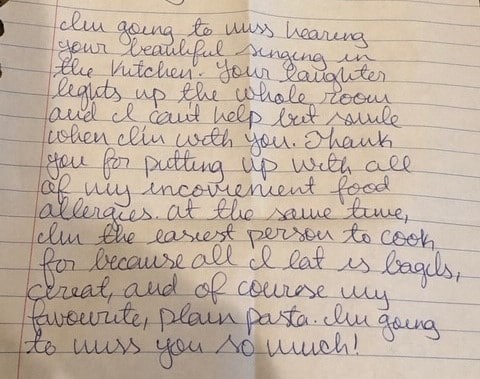 I'm going to miss hearing
your beautiful singing in
the kitchen. Your laughter
lights up the whole room
and I can't help but smile
when I'm with you. Thank
you for putting up with all
of my inconvienient food
allergies. At the same time,
I'm the easiest person to cook
for because all I eat is bagels,
cereal, and of course my
favourite, plain pasta. I'm going
to miss you so much!